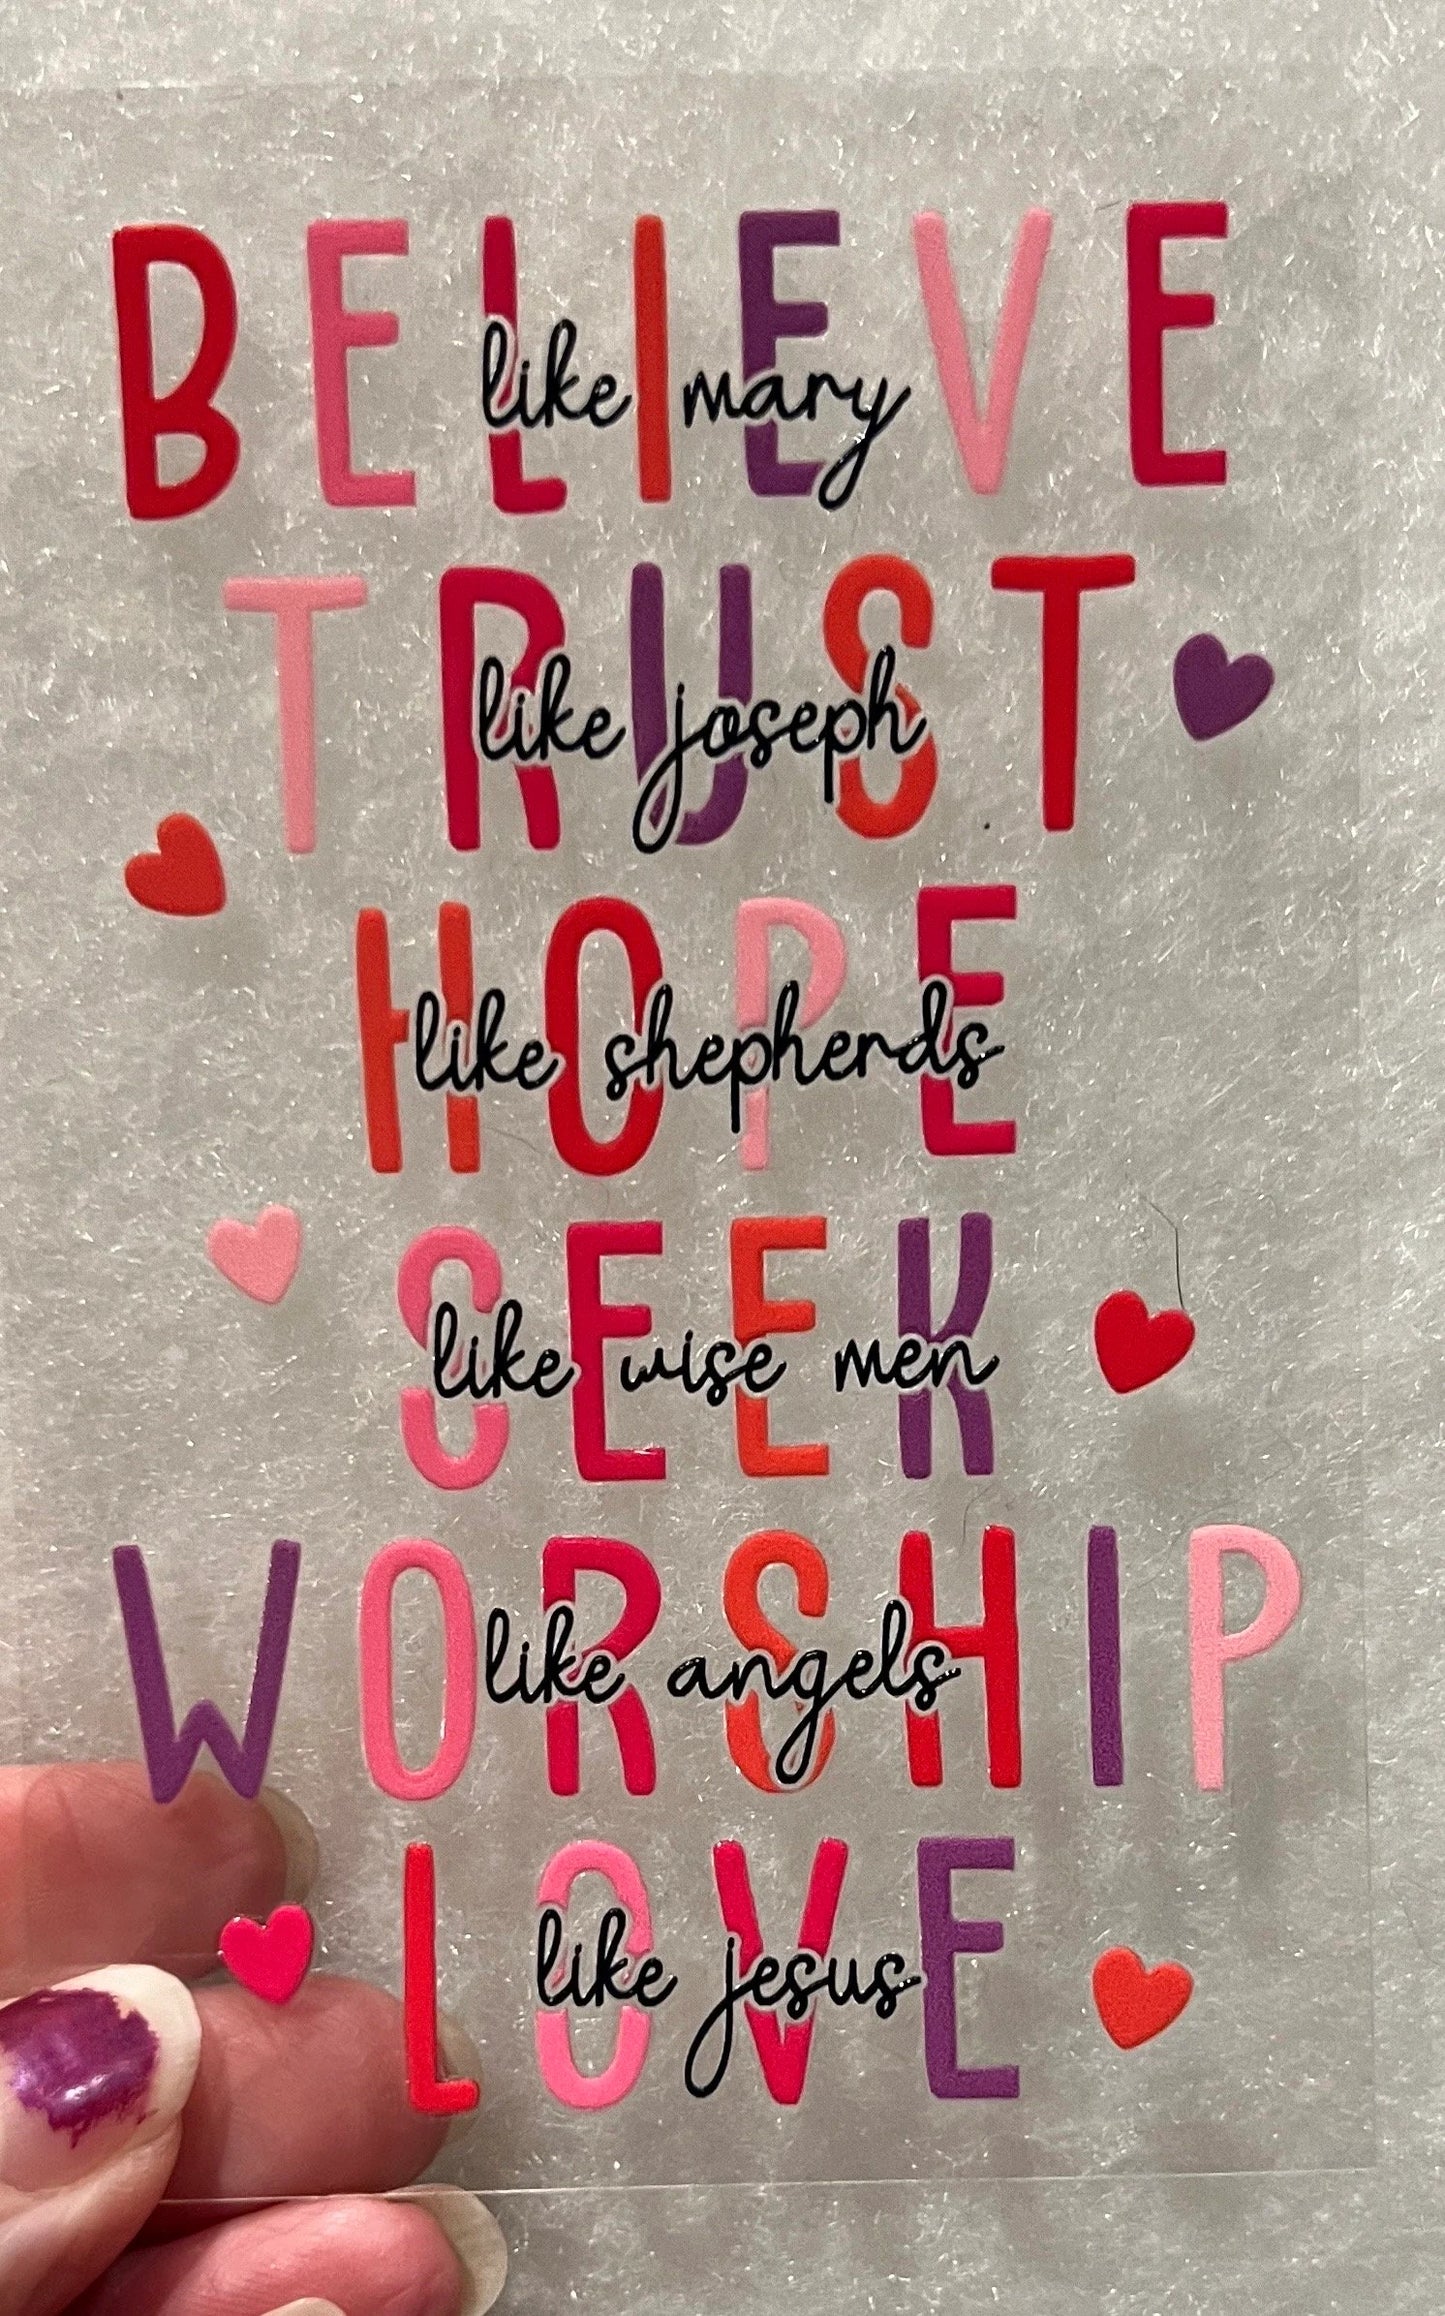 BELIEVE
like mary
TRUST
like joseph
HOPE
like shepherds
SEEK
like wise men
WORSHIP
like angels
LOVE
like jesus